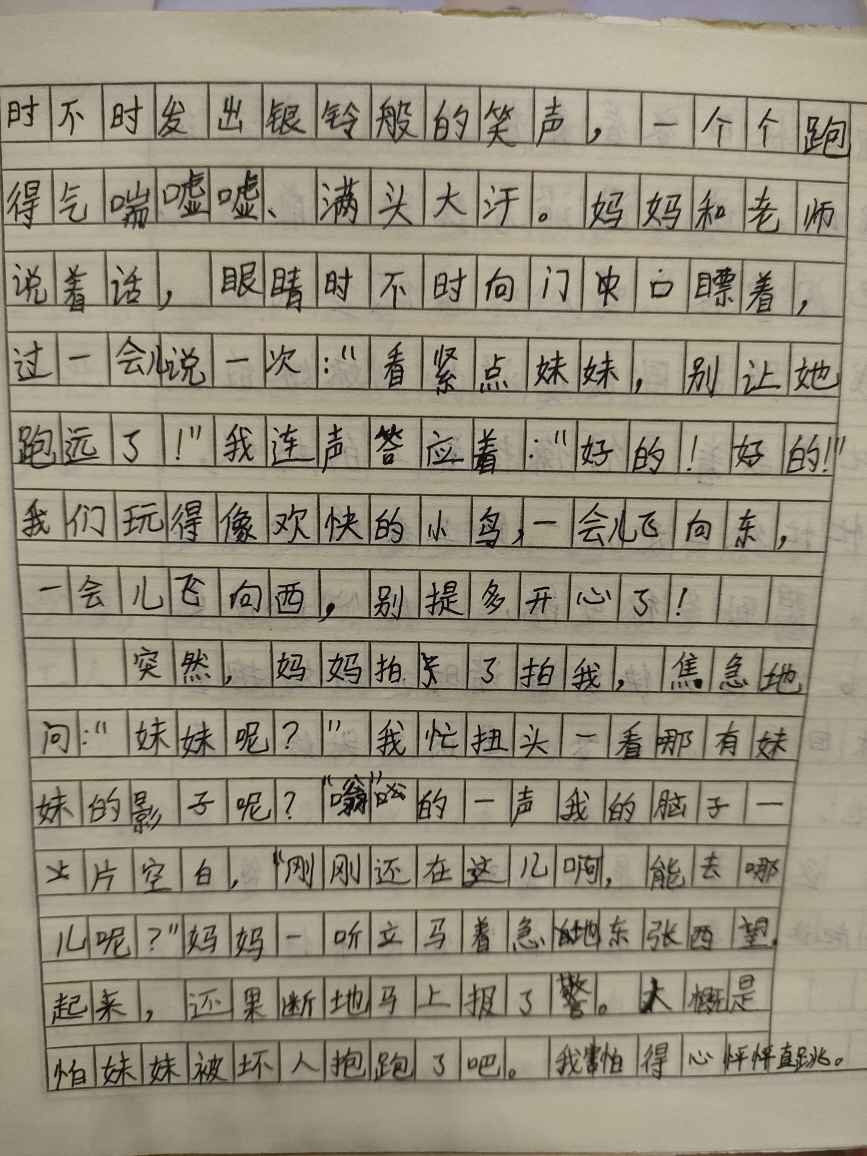 时不时发出银铃般的笑声，一个个跑
得气喘嘘嘘、满头大汗。妈妈和老师
说着话，眼睛时不时向门口瞟着，
过一会儿说一次：“看紧点妹妹，别让她
跑远了！”我连声答应着：“好的！好的！”
我们玩得像欢快的小鸟，一会儿飞向东，
一会儿飞向西，别提多开心了！
突然，妈妈拍了拍我，焦急地
问：“妹妹呢？”我忙扭头一看哪有妹
妹的影子呢？“嗡”的一声我的脑子一
片空白，“刚刚还在这儿啊，能去哪
儿呢？”妈妈一听立马着急地东张西望
起来，还果断地马上报了警。大概是
怕妹妹被坏人抱跑了吧。我害怕得心怦怦直跳。